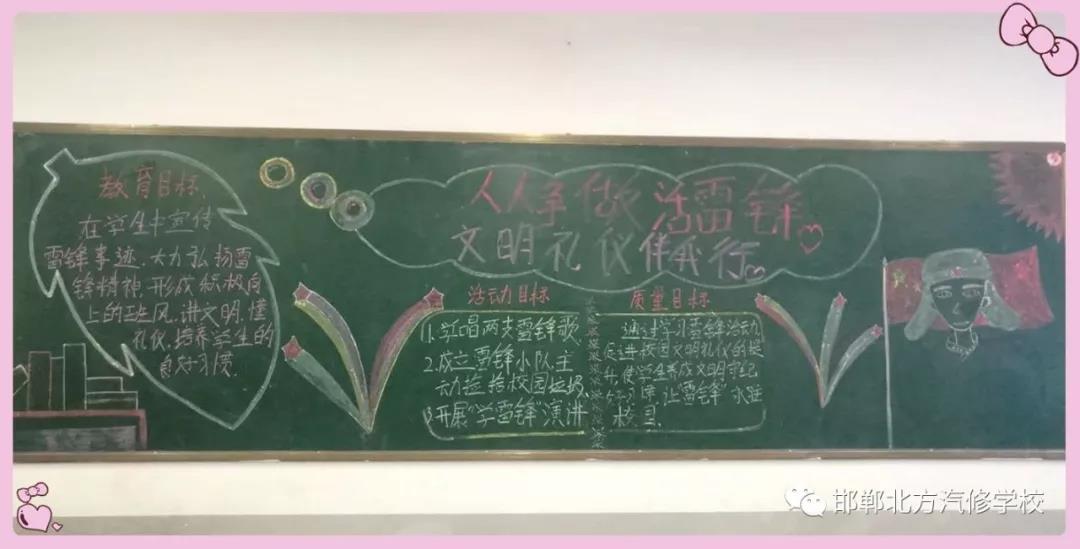 人人争做活雷锋
文明礼仪伴我行
教育目标
在学生中宣传
雷锋事迹.大力弘扬雷
锋精神,形成积极向
上的班风,讲文明,懂
礼仪,培养学生的
良好习惯.
活动目标
1.学唱两支雷锋歌
2.成立雷锋小队主
动捡拾校园垃圾
3.开展"学雷锋"演讲
质量目标
通过学习雷锋活动,
促进校园文明礼仪的提
升,使学生养成文明守纪
好习惯,让"雷锋"永驻
校园.
邯郸北方汽修学校